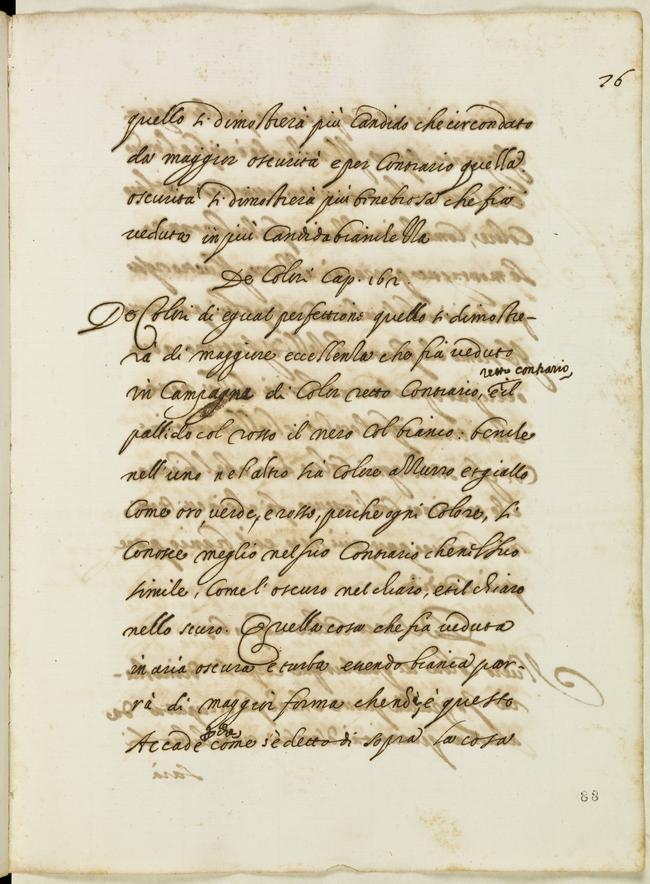 76
quello si dimostierà più Candido che circondato
da maggior oscurità e per Contrario quella
oscurità si dimostierà più tenebrosa che fia
veduta in più Candida bianchella
De Colori Cap. 162.
De Colori di egual perfettione quello si dimostre-
rà di maggiore eccellenza che fia veduto
retto contrario,
in Campagna di Color retto Contrario, è il
pallido col rosso il nero col bianco: benche
nell'uno ne l'altro sia Colore azzurro et giallo
Come oro, verde, e rosso, perche ogni Colore, si
Conosce meglio nel suo Contrario che nel suo
simile, Come l'oscuro nel chiaro, et il chiaro
nello scuro. Quella cosa che fia veduta
in aria oscura e turba essendo bianca par-
rà di maggior forma che non è, questo
Accade come s'è detto di sopra la cosa
sarà
88